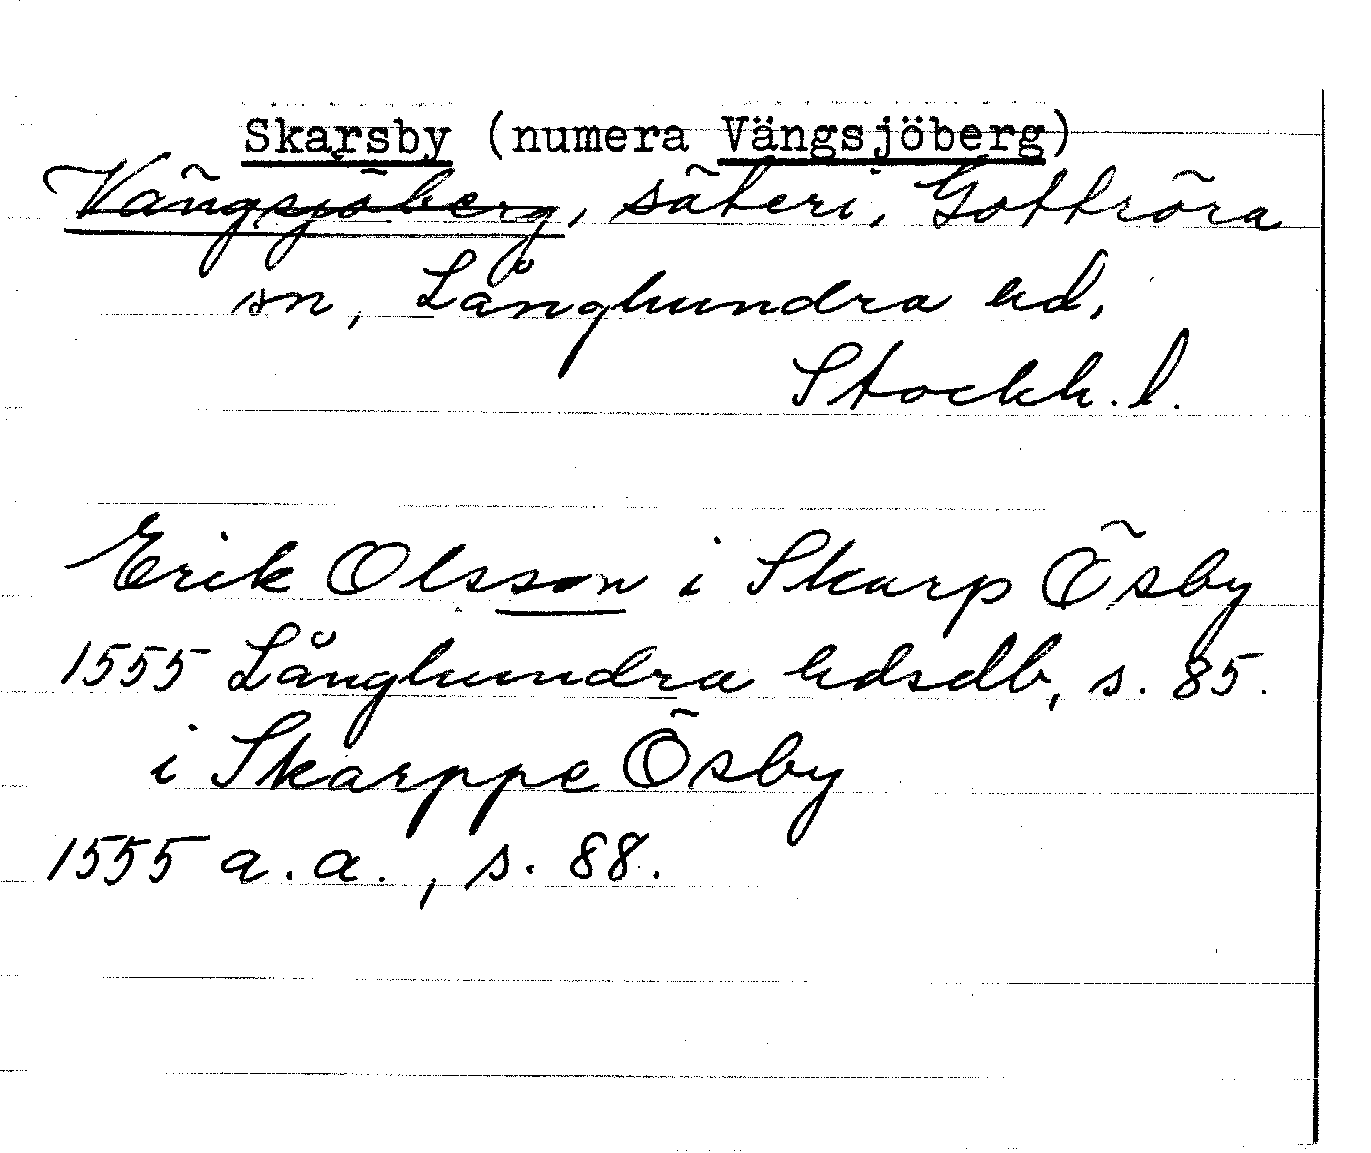 Skarsby (numera Vängsjöberg)
Vängsjöberg, säteri, Gottröra
sn, Långhundra hd,
Stockh. l.
Erik Olsson i Skarp Ösby
1555 Långhundra hdsdb, s. 85.
i Skarppe Ösby
1555 a. a., s. 88.